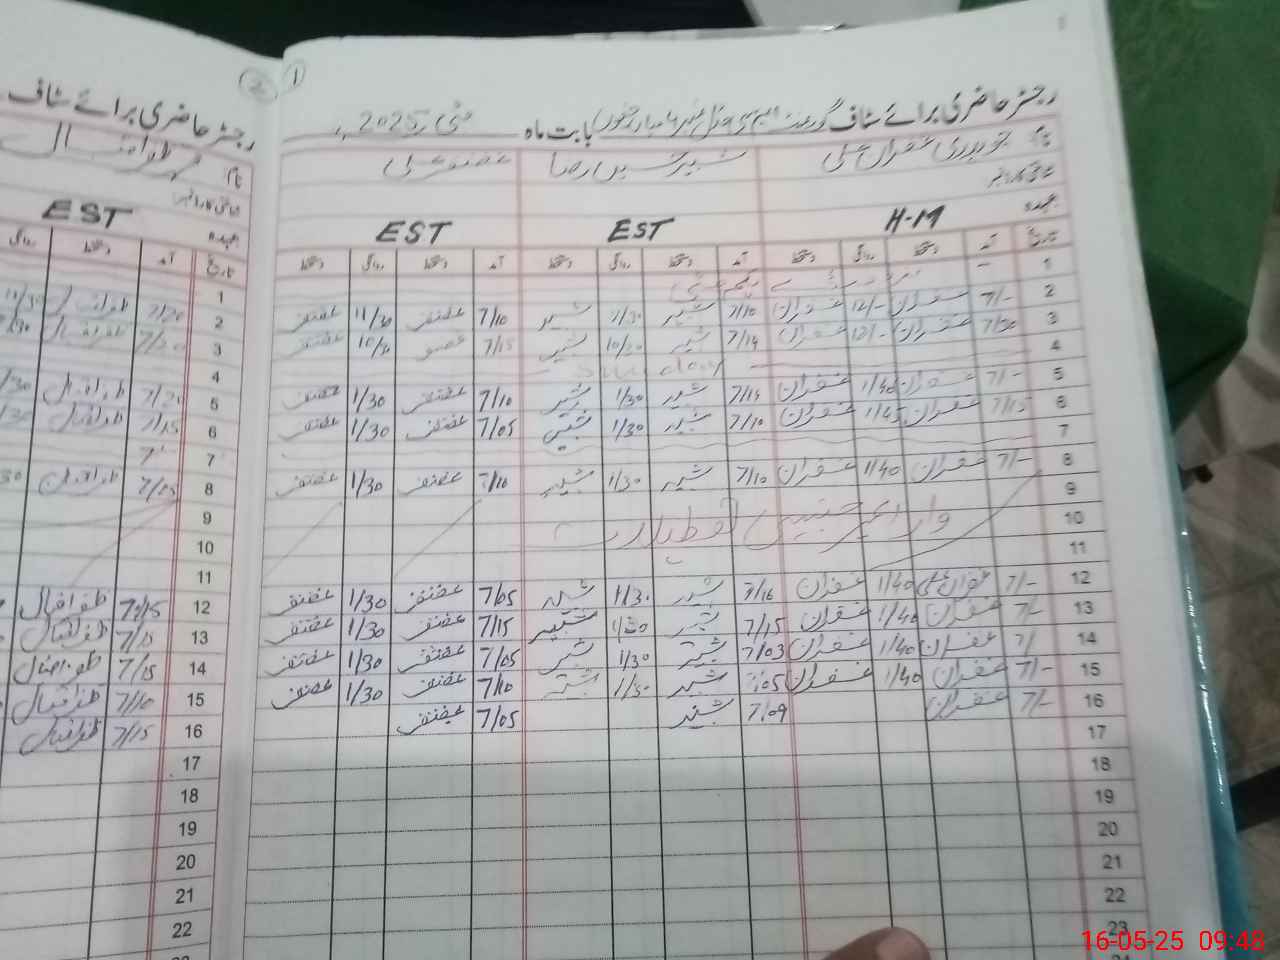 1
رجسٹر حاضری برائے سٹاف گورنمنٹ بابت ماہ مئی 2025ء
نام چوہدری غفران علی شبیر حسین رضا غضنفر علی
شناختی کارڈ نمبر
عہدہ H-M EST EST
تاریخ آمد دستخط روانگی دستخط آمد دستخط روانگی دستخط آمد دستخط روانگی دستخط
1 یکم مئی
2 7/- غفران 12/- غفران 7/10 شبیر 11/30 شبیر 7/10 غضنفر 11/30 غضنفر
3 7/30 غفران 12/- غفران 7/14 شبیر 10/30 شبیر 7/15 غضنفر 10/30 غضنفر
4 Sunday
5 7/- غفران 1/40 غفران 7/14 شبیر 1/30 شبیر 7/10 غضنفر 1/30 غضنفر
6 7/15 غفران 1/45 غفران 7/10 شبیر 1/30 شبیر 7/05 غضنفر 1/30 غضنفر
7
8 7/- غفران 1/40 غفران 7/10 شبیر 1/30 شبیر 7/10 غضنفر 1/30 غضنفر
9
10 وار ایمرجنسی تعطیلات
11
12 7/- غفران علی 1/40 غفران 7/16 شبیر 1/30 شبیر 7/05 غضنفر 1/30 غضنفر
13 7/- غفران 1/40 غفران 7/15 شبیر 1/30 شبیر 7/15 غضنفر 1/30 غضنفر
14 7/ غفران 1/40 غفران 7/03 شبیر 1/30 شبیر 7/05 غضنفر 1/30 غضنفر
15 7/- غفران 1/40 غفران 7/05 شبیر 1/30 شبیر 7/10 غضنفر 1/30 غضنفر
16 7/- غفران 7/09 شبیر 7/05 غضنفر
17
18
19
20
21
22
23
2
رجسٹر حاضری برائے سٹاف
نام ظفر اقبال
شناختی کارڈ نمبر
عہدہ EST
تاریخ آمد دستخط روانگی
1
2 7/20 ظفر اقبال 11/30
3 7/20 ظفر اقبال
4
5 7/20 ظفر اقبال
6 7/15 ظفر اقبال
7
8 7/05 ظفر اقبال
9
10
11
12 7/15 ظفر اقبال
13 7/15 ظفر اقبال
14 7/15 ظفر اقبال
15 7/10 ظفر اقبال
16 7/15 ظفر اقبال
17
18
19
20
21
22
16-05-25 09:48